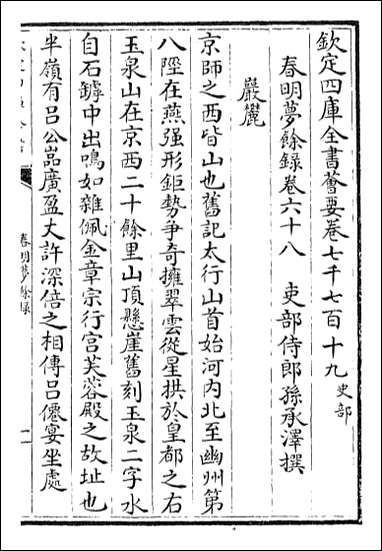 欽定四庫全書薈要卷七千七百十九 史部
春明夢餘録卷六十八 吏部侍郎孫承澤撰
巖麓
京師之西皆山也舊記太行山首始河内北至幽州第
八陘在燕强形鉅勢争奇擁翠雲從星拱於皇都之右
玉泉山在京西二十餘里山頂懸崖舊刻玉泉二字水
自石罅中出鳴如雜佩金章宗行宫芙蓉殿之故址也
半嶺有吕公嵓廣盈丈許深倍之相傳吕僊宴坐處
春明夢餘録
一